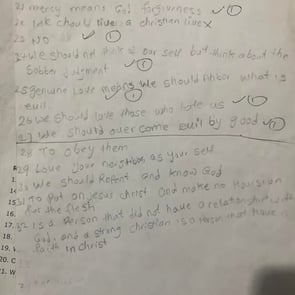 21 mercy means God forgivness ✓ 1
22 we should live a christian live x
23 NO ✓ 1
24 we should not think of our self but think about the
Sobber Judgment ✓ 1
25 genuine Love means we should Abhor what is
evil. ✓ 1
26 we should love those who hate us ✓ 1
27 we should over come Evil by good ✓ 1
28 To obey them
29 Love your neighbor as your self
30 we should Repent and know God
31 To Put on Jesus christ And make no
for the flesh
32 is a Person that did not have a relationship with
God, and a strong christian is a Person that have
faith in Christ
18.
19.
20. C
21. W